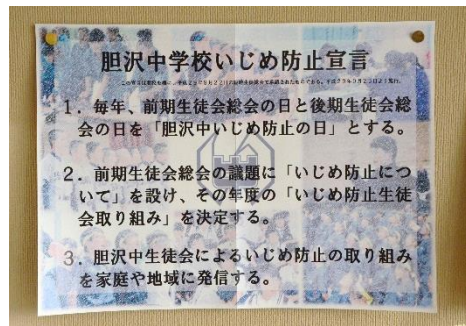 胆沢中学校いじめ防止宣言
1．毎年、前期生徒会総会の日と後期生徒会総
会の日を「胆沢中いじめ防止の日」とする。
2．前期生徒会総会の議題に「いじめ防止につ
いて」を設け、その年度の「いじめ防止生徒
会取り組み」を決定する。
3．胆沢中生徒会によるいじめ防止の取り組み
を家庭や地域に発信する。